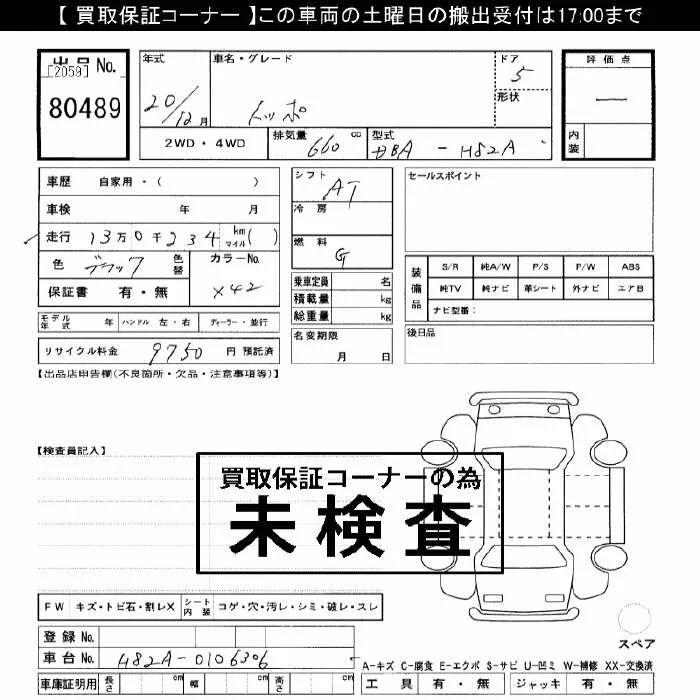 【 買取保証コーナー 】この車両の土曜日の搬出受付は17:00まで
出品 No.
[2059]
80489
年式
20/12月
車名・グレード
トッポ
ドア
5
形状
評価点
―
内装
2WD・4WD
排気量 660 cc
型式 DBA - H82A
車歴 自家用・( )
車検 年 月
走行 13万0千234 km マイル( )
色 ブラック 色替
カラーNo. X42
保証書 有・無
モデル年式 年 ハンドル 左・右 ディーラー・並行
リサイクル料金 9750 円 預託済
シフト AT
冷房
燃料 G
乗車定員 名
積載量 kg
総重量 kg
名変期限
月 日
セールスポイント
装備品
S/R 純A/W P/S P/W ABS
純TV 純ナビ 革シート 外ナビ エアB
ナビ型番:
後日品
【出品店申告欄(不良箇所・欠品・注意事項等)】
【検査員記入】
買取保証コーナーの為
未検査
FW キズ・トビ石・割レX シート内装 コゲ・穴・汚レ・シミ・破レ・スレ
登録 No.
車台 No. H82A-0106306
車庫証明用 長さ cm 幅 cm 高さ cm
スペア
A-キズ C-腐食 E-エクボ S-サビ U-凹ミ W-補修 XX-交換済
工具 有・無 ジャッキ 有・無